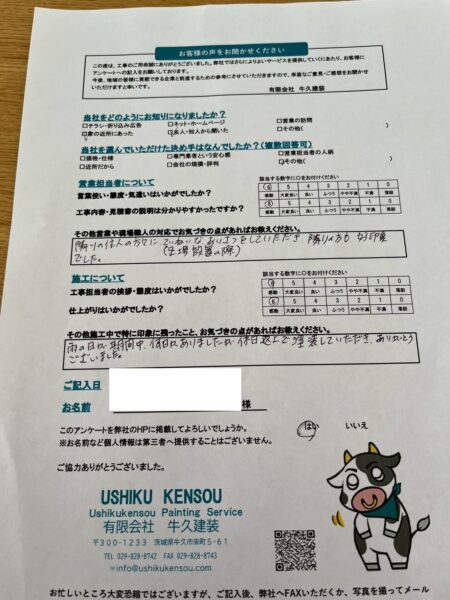 お客様の声をお聞かせください
この度は、工事のご用命誠にありがとうございました。弊社ではさらによりよいサービスを提供していくにあたり、お客様に
アンケートへの記入をお願いしております。
今後、地域の皆様に貢献できる企業と前進するための参考にさせていただきますので、率直なご意見・ご感想をお聞かせ
いただけますと幸いです。
有限会社 牛久建装
当社をどのようにお知りになりましたか？
□チラシ・折り込み広告 □ネット・ホームページ □営業の訪問
□家の近所にあった □友人・知人から聞いた □その他( )
当社を選んでいただけた決め手はなんでしたか？(複数回答可)
□価格・仕様 □専門業者という安心感 □営業担当者の人柄
□近所だから □会社の規模・評判 □その他( )
営業担当者について
該当する数字に○をお付けください
言葉使い・態度・気遣いはいかがでしたか？
6 5 4 3 2 1 0
感動 大変良い 良い ふつう やや不満 不満 落胆
工事内容・見積書の説明は分かりやすかったですか？
6 5 4 3 2 1 0
感動 大変良い 良い ふつう やや不満 不満 落胆
その他営業や現場職人の対応でお気づきの点があればお教えください。
隣りの住人の方々にていねいなあいさつをしていただき、隣りの方も好印象
でした。 (足場設置の際)
施工について
該当する数字に○をお付けください
工事担当者の挨拶・態度はいかがでしたか？
6 5 4 3 2 1 0
感動 大変良い 良い ふつう やや不満 不満 落胆
仕上がりはいかがでしたか？
6 5 4 3 2 1 0
感動 大変良い 良い ふつう やや不満 不満 落胆
その他施工中で特に印象に残ったこと、お気づきの点があればお教えください。
雨の日が期間中、何日もありましたが休日返上で塗装していただき、ありがとう
ございました。
ご記入日
お名前 様
このアンケートを弊社のHPに掲載してよろしいでしょうか。 はい いいえ
※お名前など個人情報は第三者へ提供することはございません。
ご協力ありがとうございました。
USHIKU KENSOU
Ushikukensou Painting Service
有限会社 牛久建装
〒300-1233 茨城県牛久市栄町5-61
TEL 029-828-8742 FAX 029-828-8743
✉info@ushikukensou.com
お忙しいところ大変恐縮ではございますが、ご記入後、弊社へFAXいただくか、写真を撮ってメール